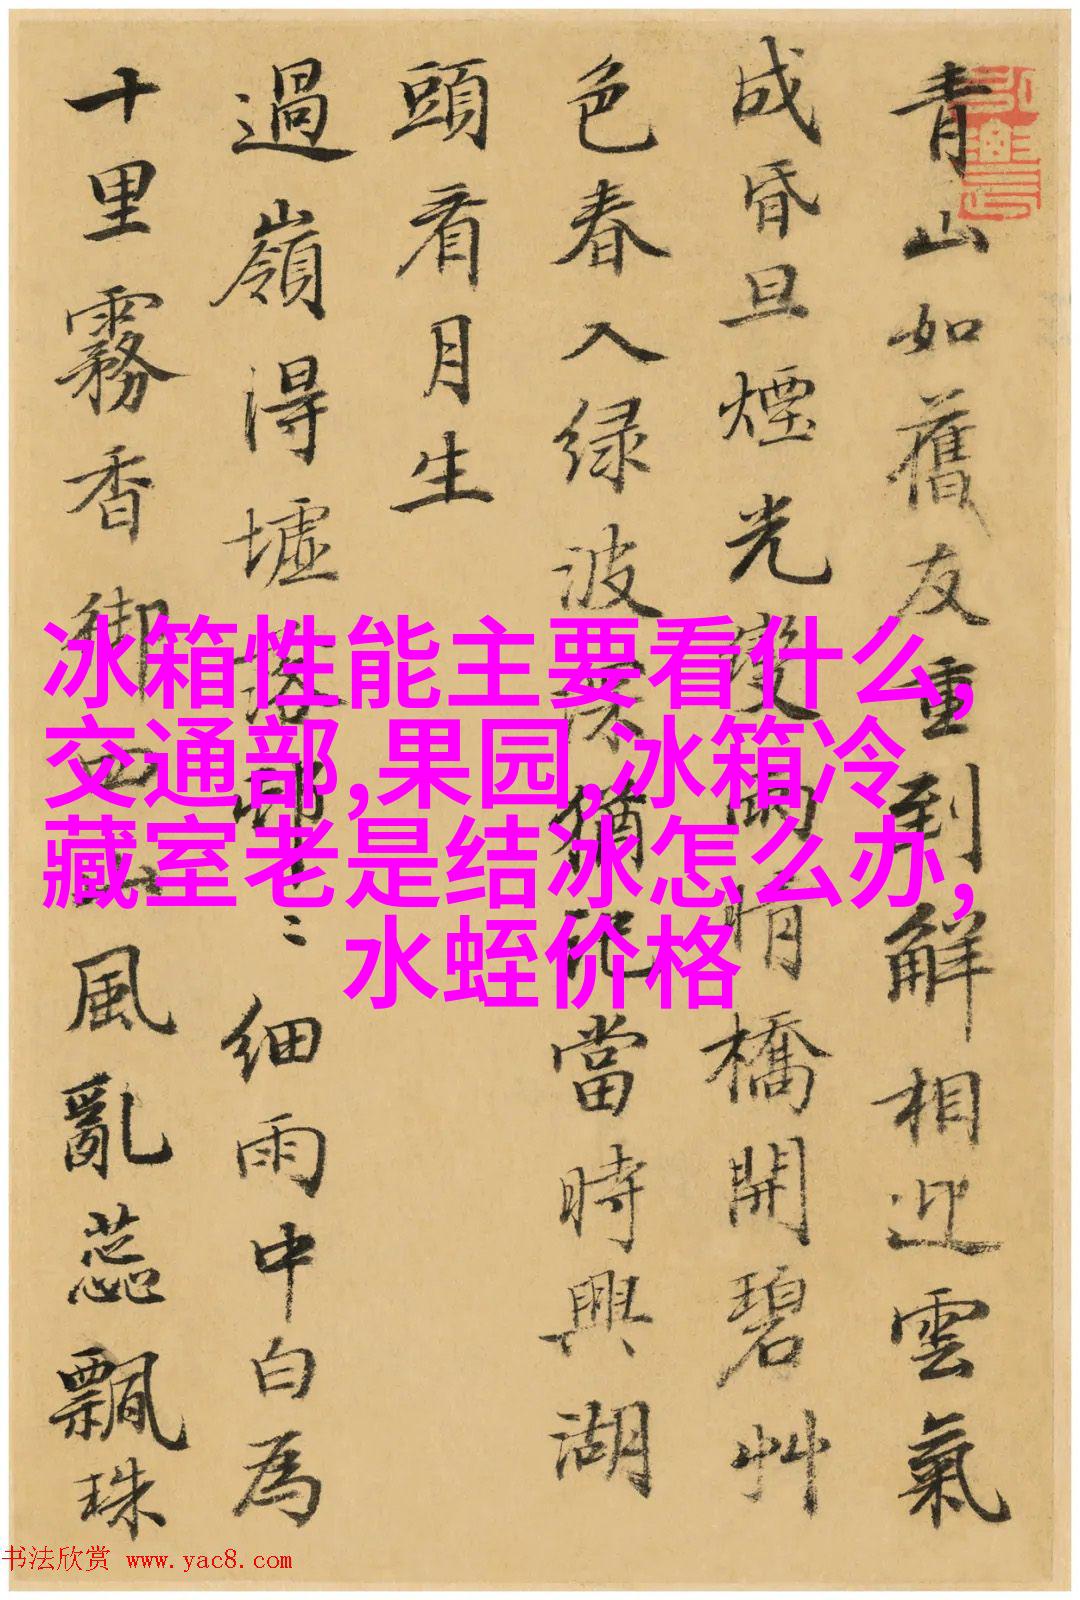 青山如舊友重到解相迎雲氣
成昏旦煙光變雨情橋開碧艸
色春入绿波深猶記當時興湖
頭看月生
過嶺得墟落邨二細雨中白為
十里霧香御四山風亂蕊飄珠
冰箱性能主要看什么,
交通部,果园,冰箱冷
藏室老是结冰怎么办,
水蛭价格
书法欣赏 www.yac8.com